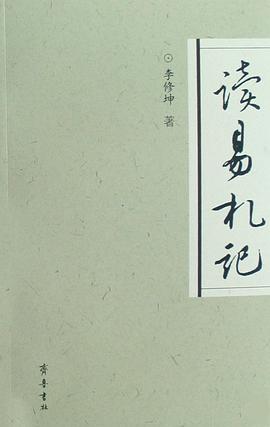 读易札记
⊙ 李修坤 著
齐鲁书社